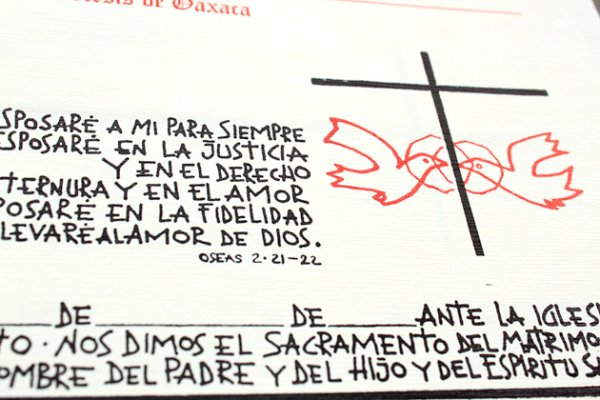 de Oaxaca
SPOSARÉ A MI PARA SIEMPRE
SPOSARÉ EN LA JUSTICIA
Y EN EL DERECHO
TERNURA Y EN EL AMOR
POSARÉ EN LA FIDELIDAD
LLEVARÉ AL AMOR DE DIOS.
OSEAS 2·21-22
DE DE ANTE LA IGLESI
TO · NOS DIMOS EL SACRAMENTO DEL MATRIMO
OMBRE DEL PADRE Y DEL HIJO Y DEL ESPIRITU SA